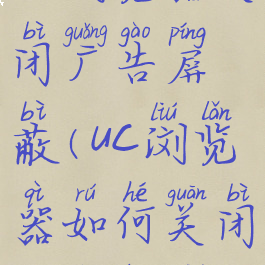 bì guǎng gào píng
闭广告屏
bì liú lǎn
蔽(UC浏览
qì rú hé guān bì
器如何关闭